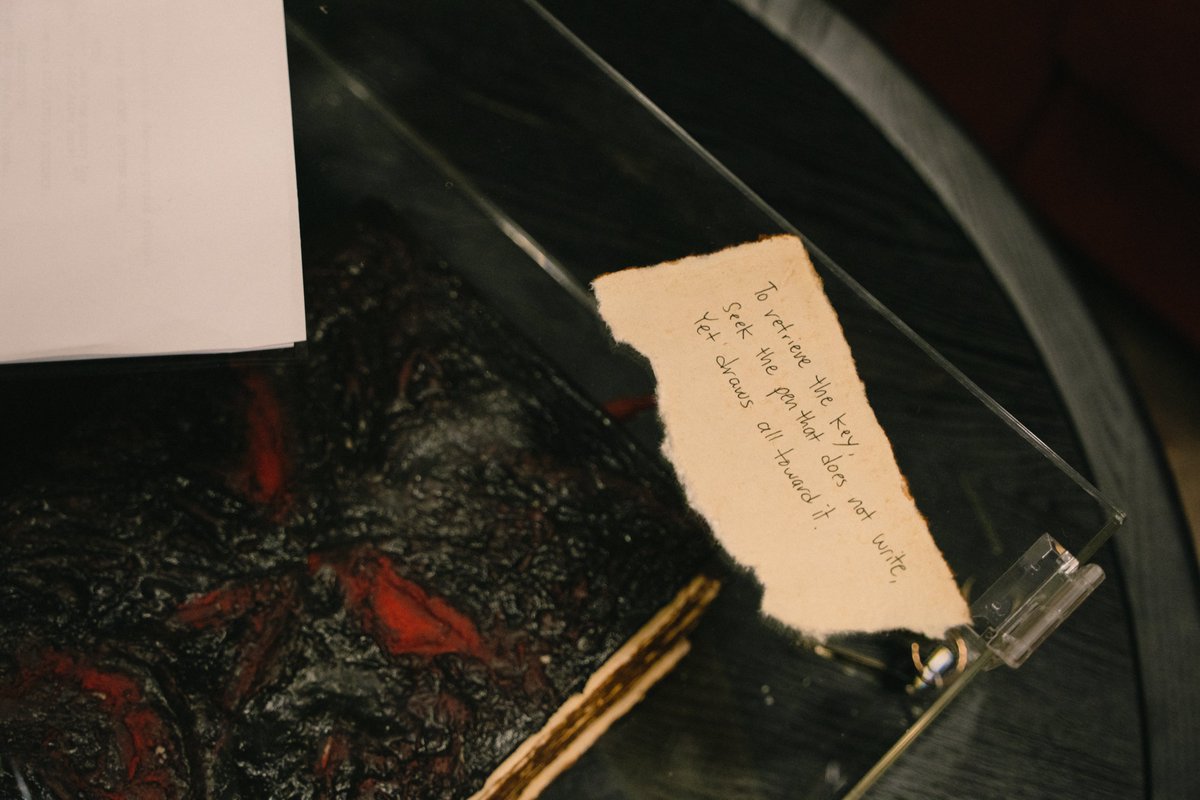 To retrieve the key,
Seek the pen that does not write,
Yet draws all toward it.